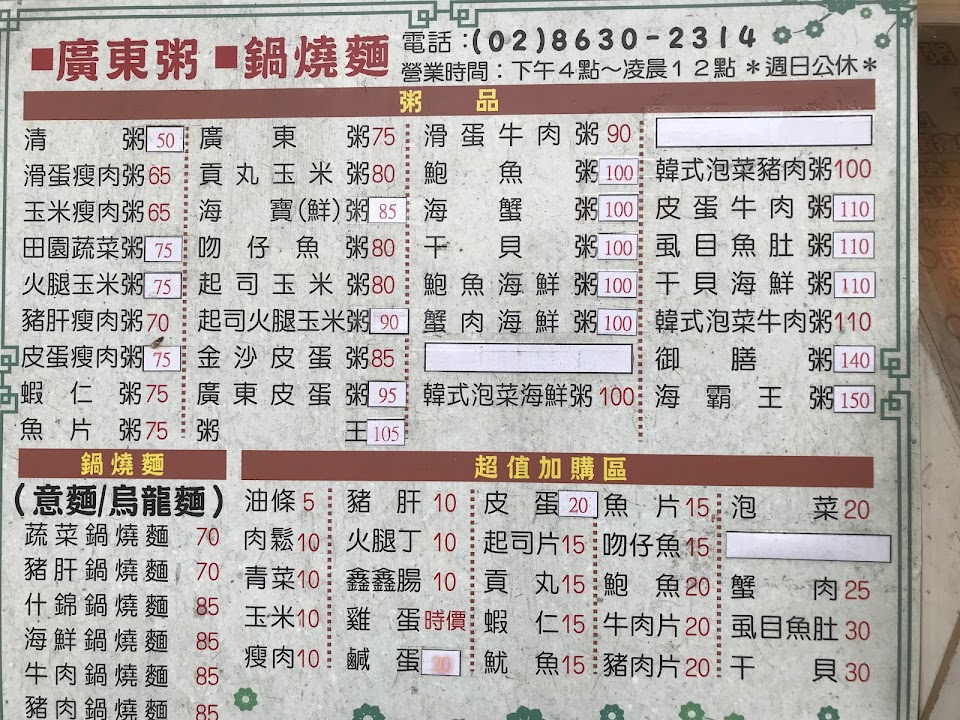 ■廣東粥 ■鍋燒麵
電話:(02)8630-2314
營業時間：下午4點～凌晨12點 ＊週日公休＊
粥品
清粥 50
滑蛋瘦肉粥 65
玉米瘦肉粥 65
田園蔬菜粥 75
火腿玉米粥 75
豬肝瘦肉粥 70
皮蛋瘦肉粥 75
蝦仁粥 75
魚片粥 75
廣東粥 75
貢丸玉米粥 80
海寶(鮮)粥 85
吻仔魚粥 80
起司玉米粥 80
起司火腿玉米粥 90
金沙皮蛋粥 85
廣東皮蛋粥 95
粥王 105
滑蛋牛肉粥 90
鮑魚粥 100
海蟹粥 100
干貝粥 100
鮑魚海鮮粥 100
蟹肉海鮮粥 100
韓式泡菜海鮮粥 100
韓式泡菜豬肉粥 100
皮蛋牛肉粥 110
虱目魚肚粥 110
干貝海鮮粥 110
韓式泡菜牛肉粥 110
御膳粥 140
海霸王粥 150
鍋燒麵
(意麵/烏龍麵)
蔬菜鍋燒麵 70
豬肝鍋燒麵 70
什錦鍋燒麵 85
海鮮鍋燒麵 85
牛肉鍋燒麵 85
豬肉鍋燒麵 85
超值加購區
油條 5
肉鬆 10
青菜 10
玉米 10
瘦肉 10
豬肝 10
火腿丁 10
鑫鑫腸 10
雞蛋 時價
鹹蛋 20
皮蛋 20
起司片 15
貢丸 15
蝦仁 15
魷魚 15
魚片 15
吻仔魚 15
鮑魚 20
牛肉片 20
豬肉片 20
泡菜 20
蟹肉 25
虱目魚肚 30
干貝 30